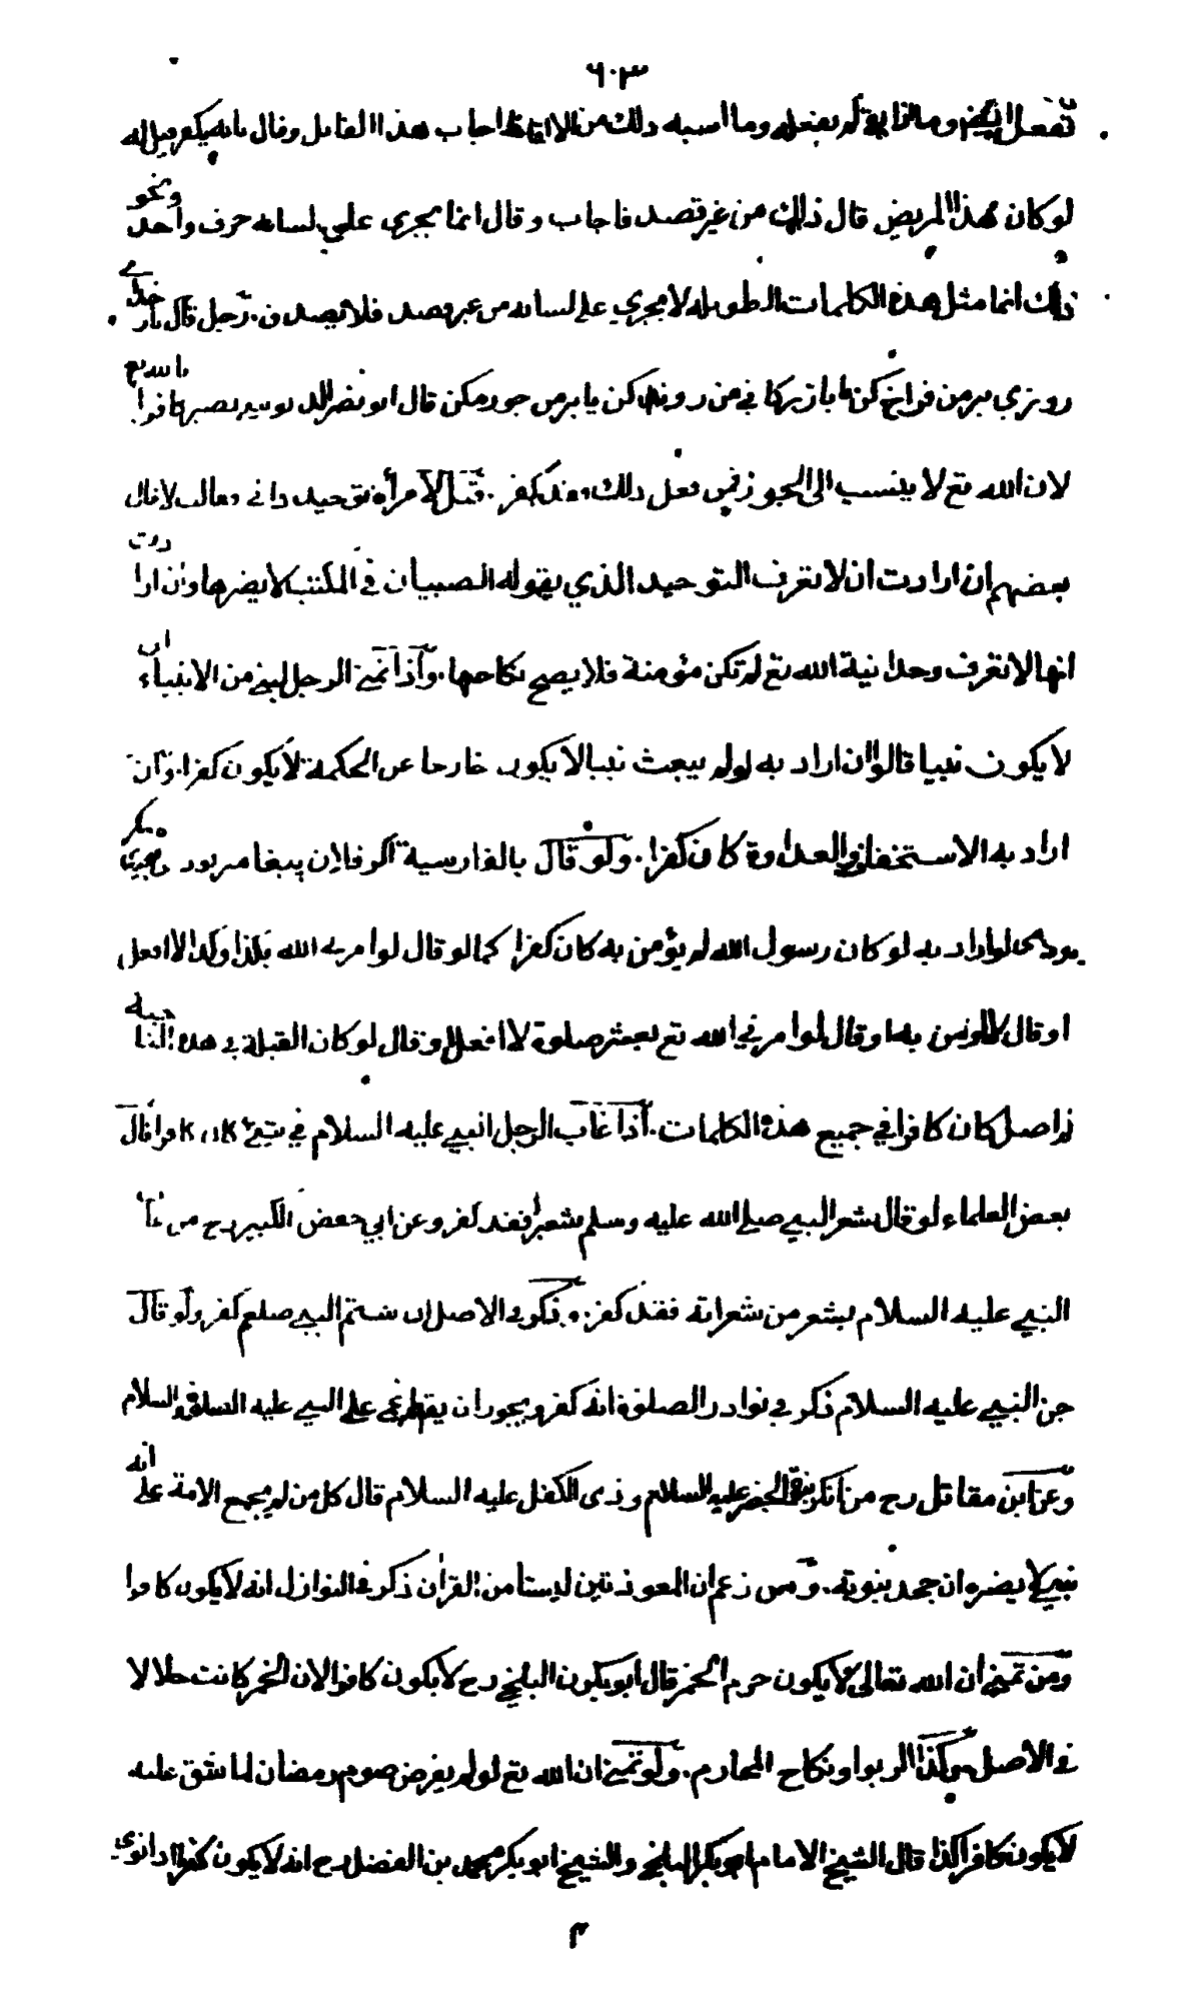 ٦٠٣
تفعل ايضا وماذا بقي لم يفعله وما اشبه ذلك من الالفاظ اجاب هذا القائل وقال بانه يكفر قيل له
لو كان هذا المريض قال ذلك من غير قصد فاجاب وقال انما يجري على لسانه حرف واحد ونحو
ذلك انما مثل هذه الكلمات الطويلة لا يجري على لسانه من غير قصد فلا يصدق . رجل قال بار خداے
روزي بر من فراخ كن يا بازركاني من رونده كن يا بر من جور مكن قال ابو نصر الدبوسي يصير كافرا بالله تع
لان الله تع لا ينسب الى الجور فمن فعل ذلك فقد كفر . قيل لامرأة توحيد داني فقالت لا قال
بعضهم ان ارادت ان لا تعرف التوحيد الذي يقوله الصبيان في المكتب لا يضرها وان ارادت
انها لا تعرف وحدانية الله تع لم تكن مؤمنة فلا يصح نكاحها . واذا تمنى الرجل لنبي من الانبياء ان
لا يكون نبيا قالوا ان اراد به لو لم يبعث نبيا لا يكون خارجا عن الحكمة لا يكون كفرا . وان
اراد به الاستخفاف والعداوة كان كفرا . ولو قال بالفارسية اكر فلان پيغامبر بود
لو اراد به لو كان رسول الله لم يؤمن به كان كفرا كما لو قال لو امر به الله بكذا وكذا لا افعل
او قال لا اومن به او قال لو امرني الله تع بعشر صلوة لا افعل او قال لو كان القبلة في هذه الناحية
لم اصل كان كافرا في جميع هذه الكلمات . اذا عاب الرجل النبي عليه السلام في شيء كان كافرا قال
بعض العلماء لو قال لشعر النبي صلى الله عليه وسلم شعير فقد كفر وعن ابي حفص الكبير رح من عاب
النبي عليه السلام بشعر من شعراته فقد كفر . وذكر في الاصل ان شتم النبي صلعم كفر ولو قال
جن النبي عليه السلام ذكر في نوادر الصلوة انه كفر ويجوز ان يقال اغمي على النبي عليه السلام
وعن ابن مقاتل رح من انكر نبوة الخضر عليه السلام وذي الكفل عليه السلام قال كل من لم يجمع الامة على انه
نبي لا يضره ان جحد بنوته . ومن زعم ان المعوذتين ليستا من القران ذكر في النوازل انه لا يكون كافرا
ومن تمنى ان الله تعالى لا يكون حرم الخمر قال ابو بكر البلخي رح لا يكون كافرا لان الخمر كانت حلالا
في الاصل وكذا الربوا ونكاح المحارم . ولو تمنى ان الله تع لو لم يفرض صوم رمضان لما شق عليه
لا يكون كافرا كذا قال الشيخ الامام ابو بكر البلخي والشيخ ابو بكر محمد بن الفضل رح انه لا يكون كفرا اذا نوى